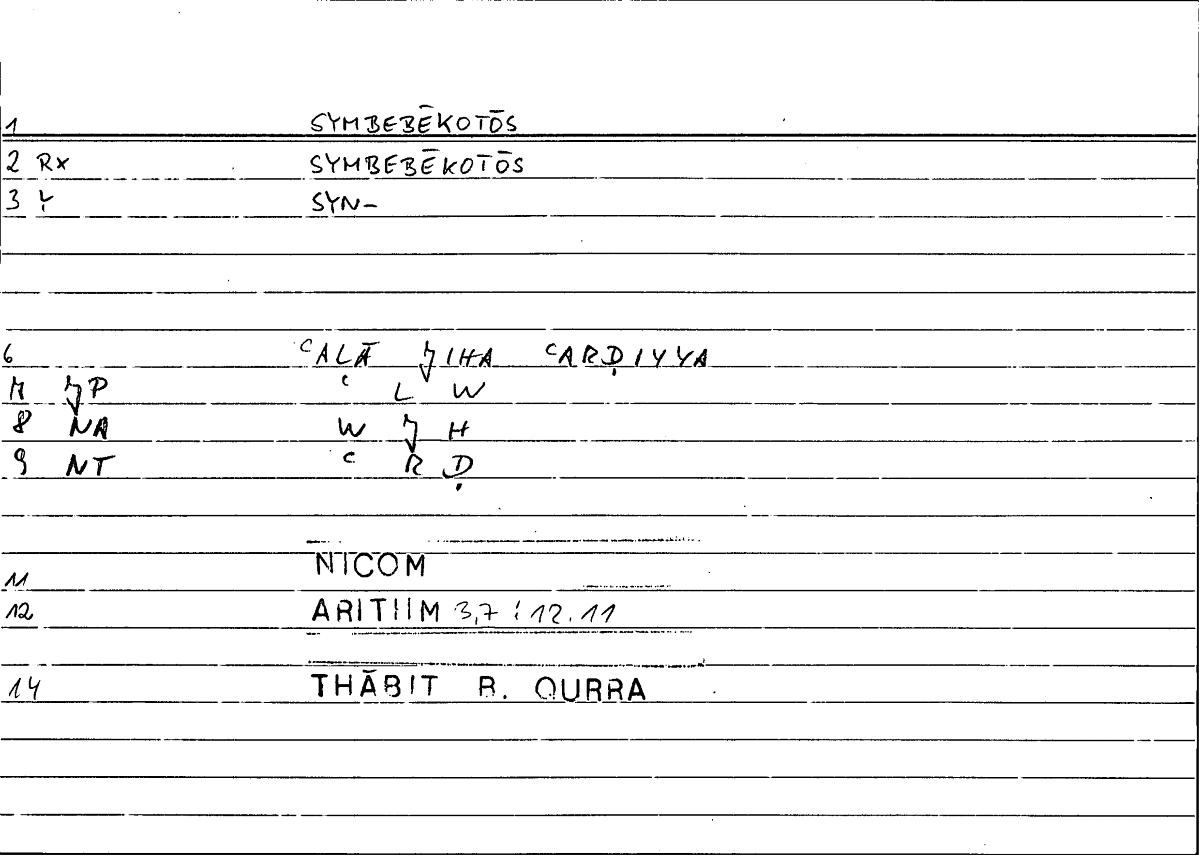 1 SYMBEBĒKOTŌS
2 RX SYMBEBĒKOTŌS
3 SYN-
6 ʿALĀ ʿARḌIYYA
ʿ L W
8 NA W H
9 NT ʿ R Ḍ
11 NICOM
12 ARITHM 3,7 : 12.11
14 THĀBIT B. QURRA